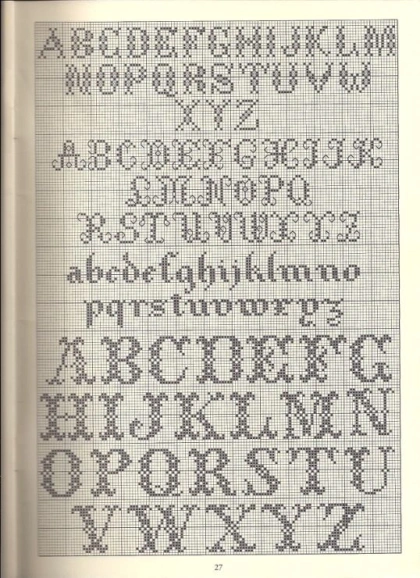 ABCDEFGHIJKLM
NOPQRSTUVW
XYZ
ABCDEFGHIJK
LMNOPQ
RSTUVWXYZ
abcdefghijklmno
pqrstuvwxyz
ABCDEFG
HIJKLMN
OPQRSTU
VWXYZ
27